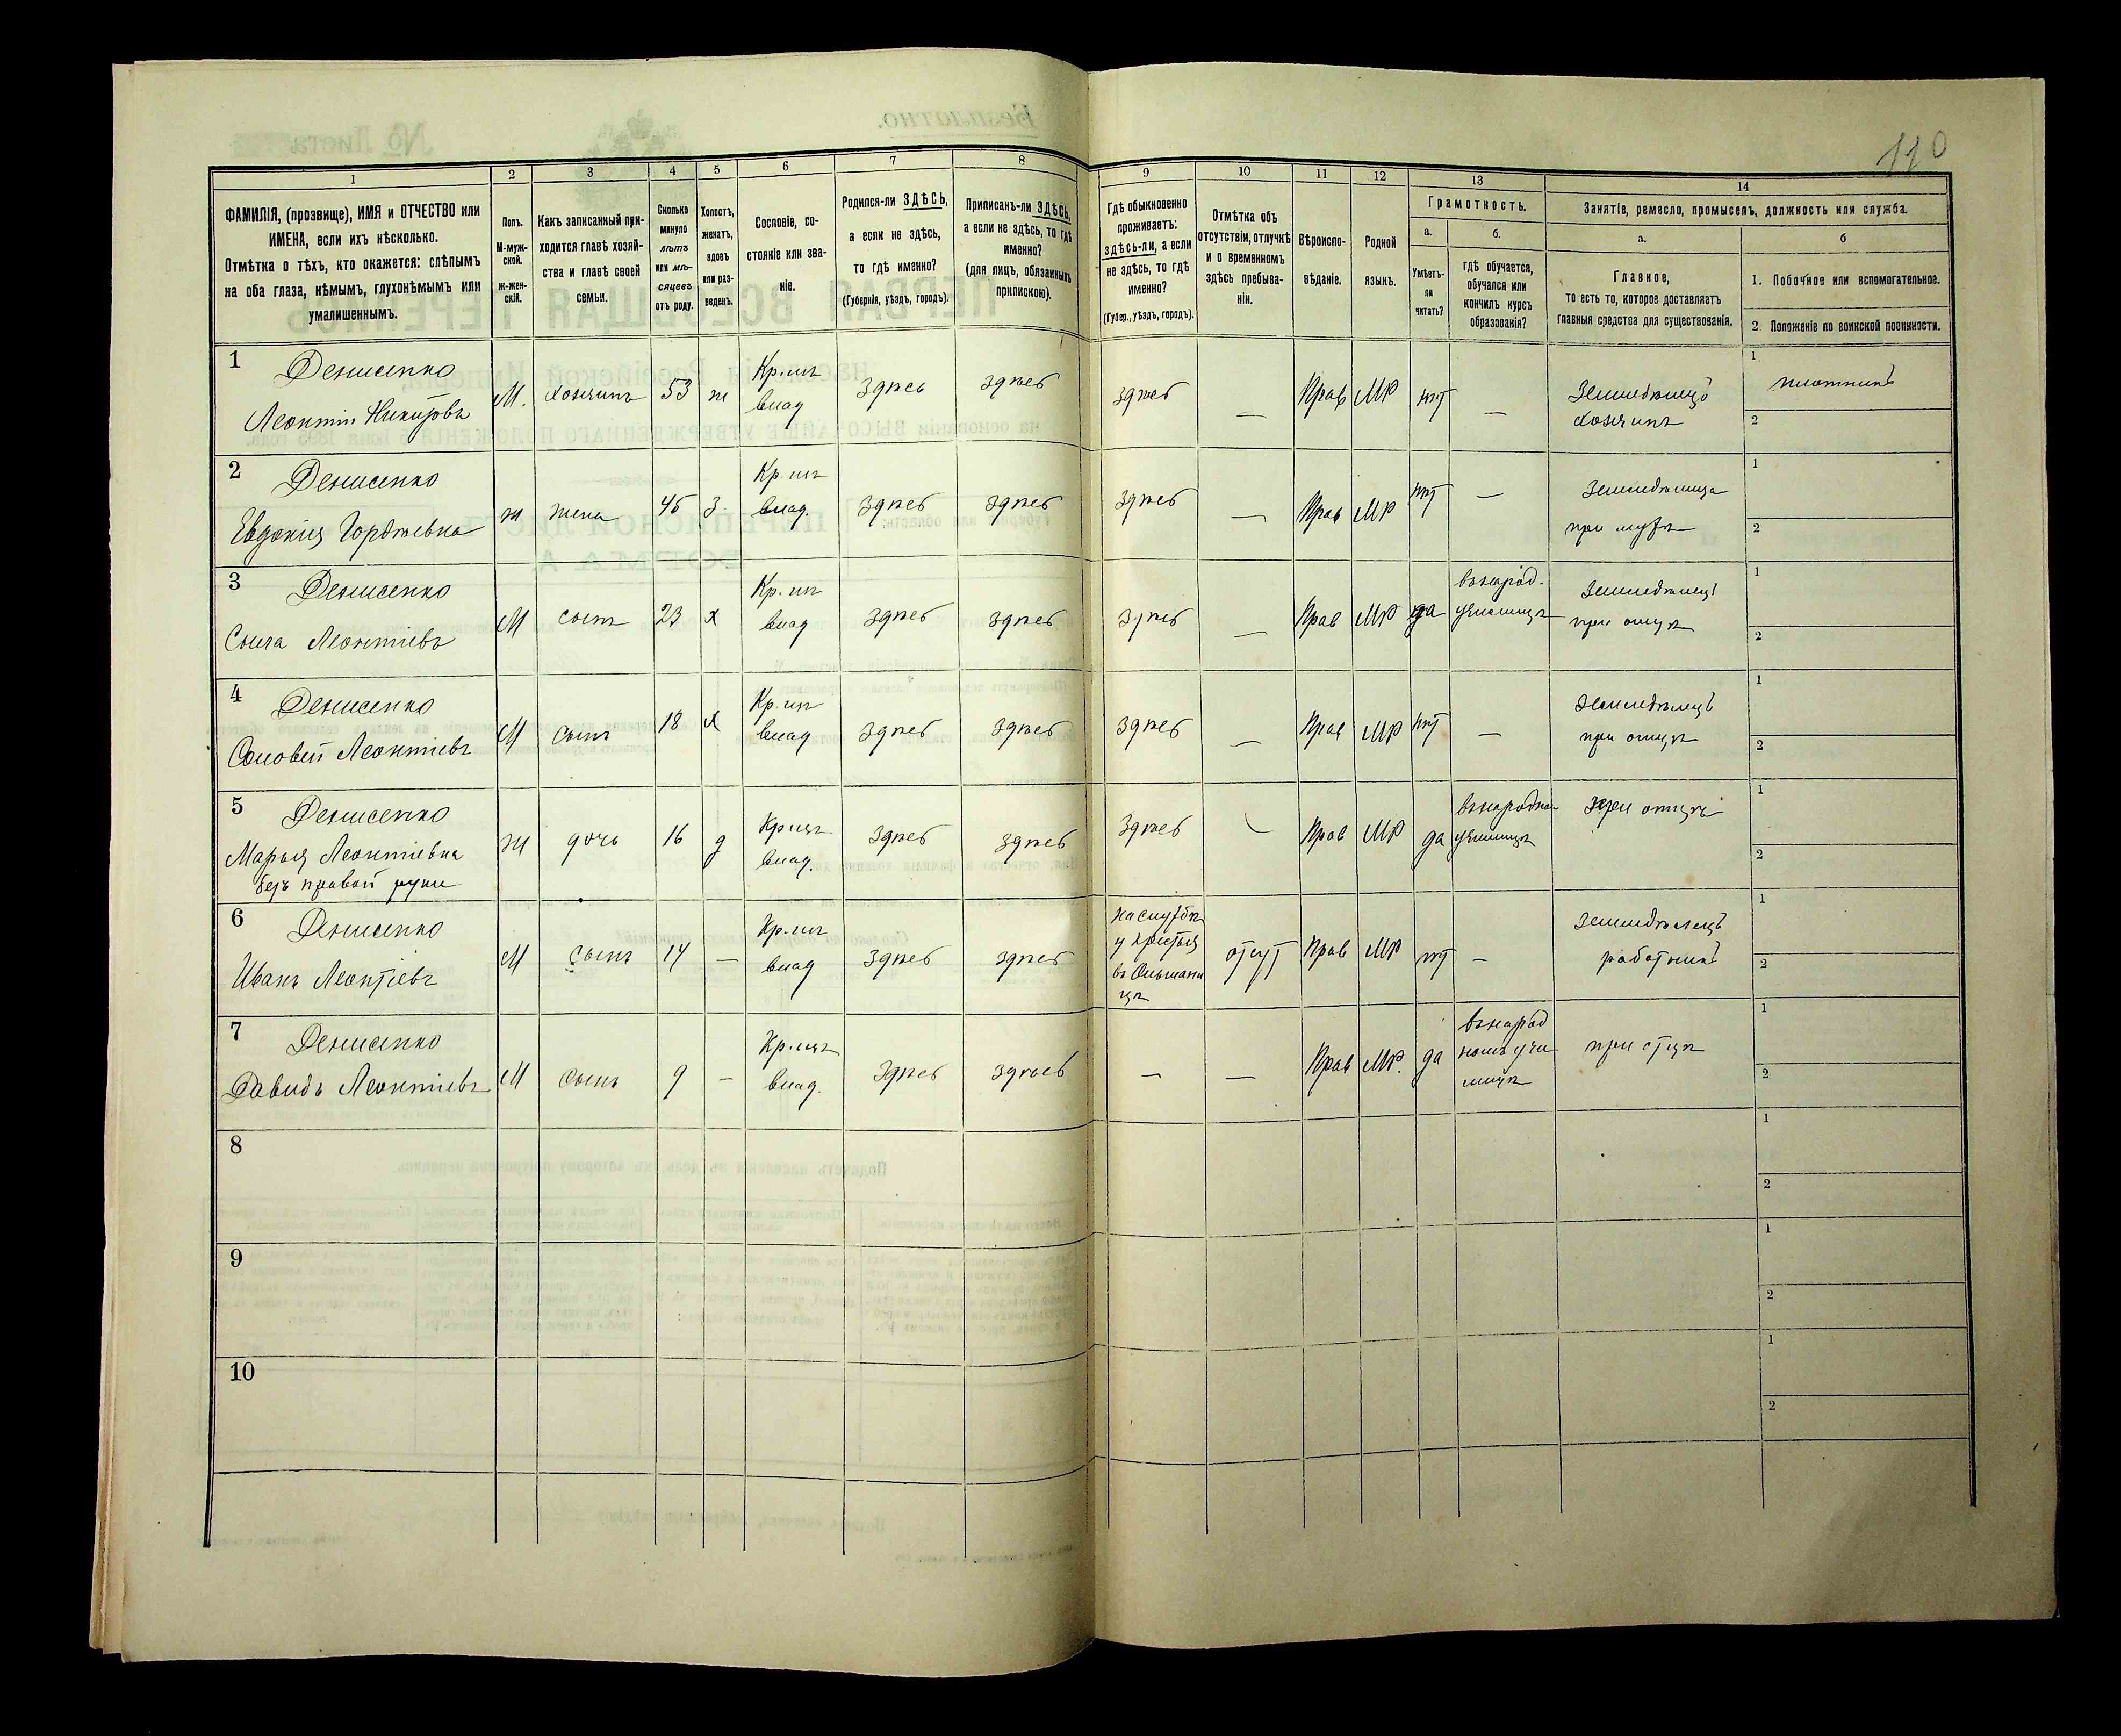 110
1 2 3 4 5 6 7 8 9 10 11 12 13 14
ФАМИЛІЯ, (прозвище), ИМЯ и ОТЧЕСТВО или
ИМЕНА, если ихъ нѣсколько.
Отмѣтка о тѣхъ, кто окажется: слѣпымъ
на оба глаза, нѣмымъ, глухонѣмымъ или
умалишеннымъ.
Полъ.
М-муж-
ской.
Ж-жен-
скій.
Какъ записанный при-
ходится главѣ хозяй-
ства и главѣ своей
семьи.
Сколько
минуло
лѣтъ
или мѣ-
сяцевъ
отъ роду.
Холостъ,
женатъ,
вдовъ
или раз-
веденъ.
Сословіе, со-
стояніе или зва-
ніе.
Родился-ли ЗДѢСЬ,
а если не здѣсь,
то гдѣ именно?
(Губернія, уѣздъ, городъ).
Приписанъ-ли ЗДѢСЬ,
а если не здѣсь, то гдѣ
именно?
(для лицъ, обязанныхъ
припискою).
Гдѣ обыкновенно
проживаетъ:
здѣсь-ли, а если
не здѣсь, то гдѣ
именно?
(Губер., уѣздъ, городъ).
Отмѣтка объ
отсутствіи, отлучкѣ
и о временномъ
здѣсь пребыва-
ніи.
Вѣроиспо-
вѣданіе.
Родной
языкъ.
Грамотность.
а.
Умѣетъ-
ли
читать?
б.
Гдѣ обучается,
обучался или
кончилъ курсъ
образованія?
Занятіе, ремесло, промыселъ, должность или служба.
а.
Главное,
то есть то, которое доставляетъ
главныя средства для существованія.
б
1. Побочное или вспомогательное.
2. Положеніе по воинской повинности.
1 Денисенко
Леонтій Никитовъ
М. хозяинъ 53 ж
Кр. изъ
влад
здѣсь здѣсь здѣсь — Прав МР нѣт —
Земледѣлецъ
хозяинъ
1 плотникъ
2
2 Денисенко
Евдокія Гордѣевна
ж жена 45 з.
Кр. изъ
влад.
здѣсь здѣсь здѣсь — Прав МР нѣт —
Земледѣлица
при мужѣ
1
2
3 Денисенко
Леонтіевъ
М сынъ 23 х
Кр. изъ
влад
здѣсь здѣсь здѣсь — Прав МР да
въ народ.
училищѣ
Земледѣлецъ
при отцѣ
1
2
4 Денисенко
Соловей Леонтіевъ
М сынъ 18 х
Кр. изъ
влад
здѣсь здѣсь здѣсь — Прав МР нѣт —
Земледѣлецъ
при отцѣ
1
2
5 Денисенко
Марья Леонтіевна
безъ правой руки
ж дочь 16 д
Кр изъ
влад.
здѣсь здѣсь здѣсь — Прав МР да
въ народном
училищѣ
при отцѣ
1
2
6 Денисенко
Иванъ Леонтіевъ
М сынъ 14 —
Кр. изъ
влад
здѣсь здѣсь
на службѣ
у крестья
въ Ольшани
цѣ
отсут Прав МР нѣт —
Земледѣлецъ
работникъ
1
2
7 Денисенко
Давидъ Леонтіевъ
М сынъ 9 —
Кр. изъ
влад.
здѣсь здѣсь — — Прав МР. да
въ народ
номъ учи
лищѣ
при отцѣ
1
2
8
1
2
9
1
2
10
1
2